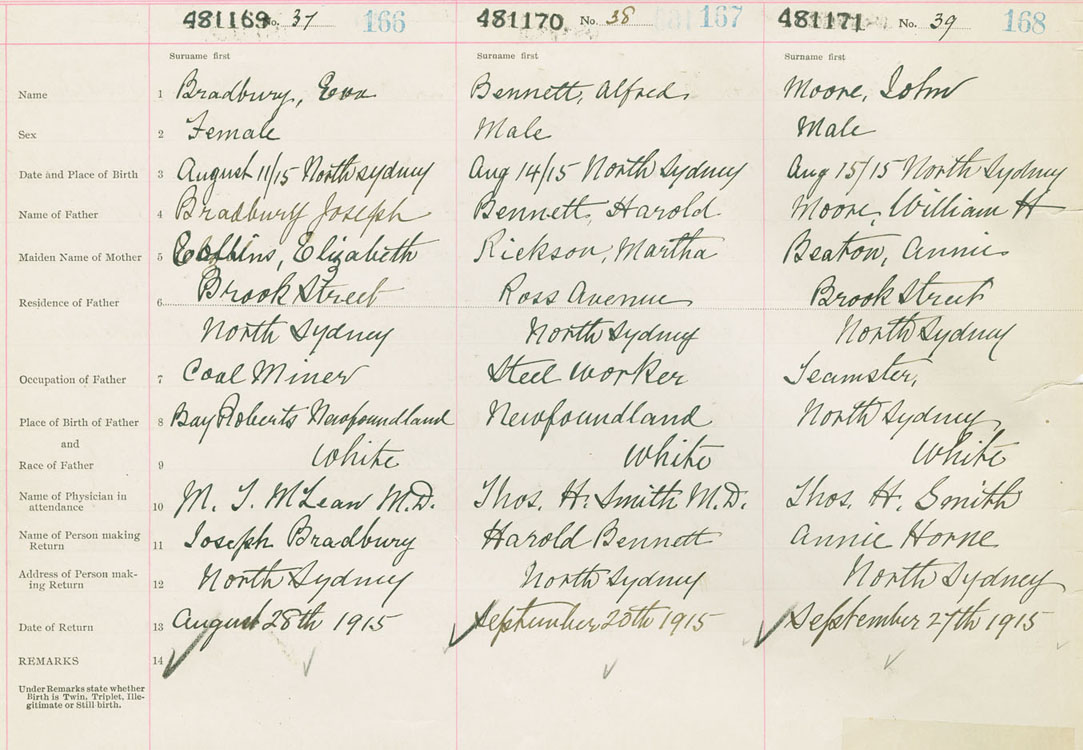 481169 No. 37 166 481170 No. 38 167 481171 No. 39 168
Surname first Surname first Surname first
Name 1 Bradbury, Eva Bennett, Alfred Moore, John
Sex 2 Female Male Male
Date and Place of Birth 3 August 11/15 North Sydney Aug 14/15 North Sydney Aug 15/15 North Sydney
Name of Father 4 Bradbury Joseph Bennett, Harold Moore, William H
Maiden Name of Mother 5 Elizabeth Rickson, Martha Beaton, Annie
Residence of Father 6 Brook Street Ross Avenue Brook Street
North Sydney North Sydney North Sydney
Occupation of Father 7 Coal Miner Steel Worker Teamster,
Place of Birth of Father 8 Bay Roberts Newfoundland Newfoundland North Sydney
and
Race of Father 9 White White White
Name of Physician in
attendance 10 M. T. McLean M.D. Thos. H. Smith M.D. Thos. H. Smith
Name of Person making
Return 11 Joseph Bradbury Harold Bennett Annie Horne
Address of Person mak-
ing Return 12 North Sydney North Sydney North Sydney
Date of Return 13 August 28th 1915 September 20th 1915 September 27th 1915
REMARKS 14
Under Remarks state whether
Birth is Twin, Triplet, Ille-
gitimate or Still birth.